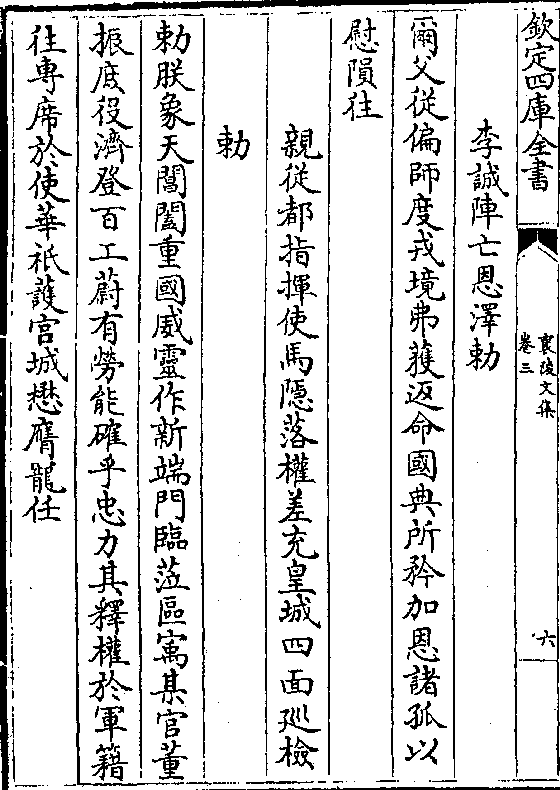 欽定四庫全書
襄陵文集
卷三
六
李誠陣亡恩澤勅
爾父從偏師度戎境弗獲返命國典所矜加恩諸孤以
慰隕往
親從都指揮使馬隱落權差充皇城四面巡檢
勅
勅朕象天閶闔重國威靈作新端門臨蒞區㝢某官董
振厎役濟登百工蔚有勞能確乎忠力其釋權於軍籍
往専席於使華祇護宫城懋膺寵任